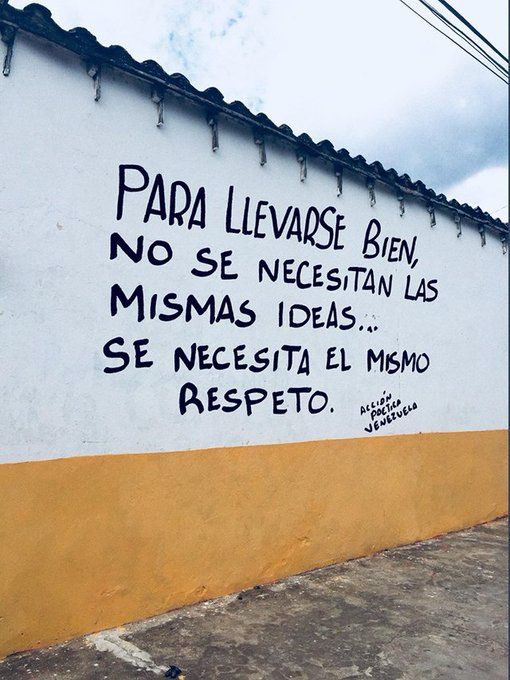 PARA LLEVARSE BIEN,
NO SE NECESITAN LAS
MISMAS IDEAS...
SE NECESITA EL MISMO
RESPETO.
ACCIÓN
POETICA
VENEZUELA